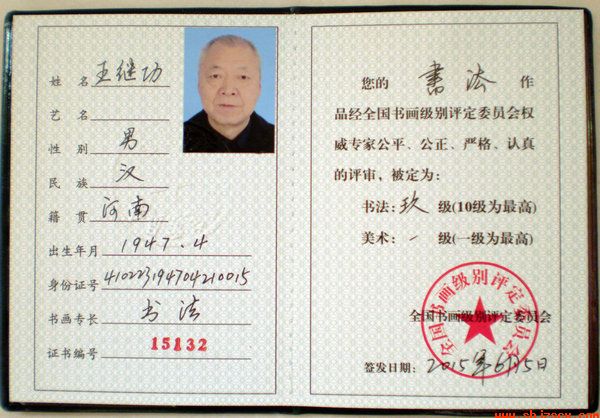 姓名 王继功
艺名
性别 男
民族 汉
籍贯 河南
出生年月 1947.4
身份证号 410223194704210015
书画专长 书法
证书编号 15132
您的 书法 作
品经全国书画级别评定委员会权
威专家公平、公正、严格、认真
的评审，被定为：
书法：玖 级(10级为最高)
美术：一 级(一级为最高)
全国书画级别评定委员会
全国书画级别评定委员会
签发日期：2015年6月5日